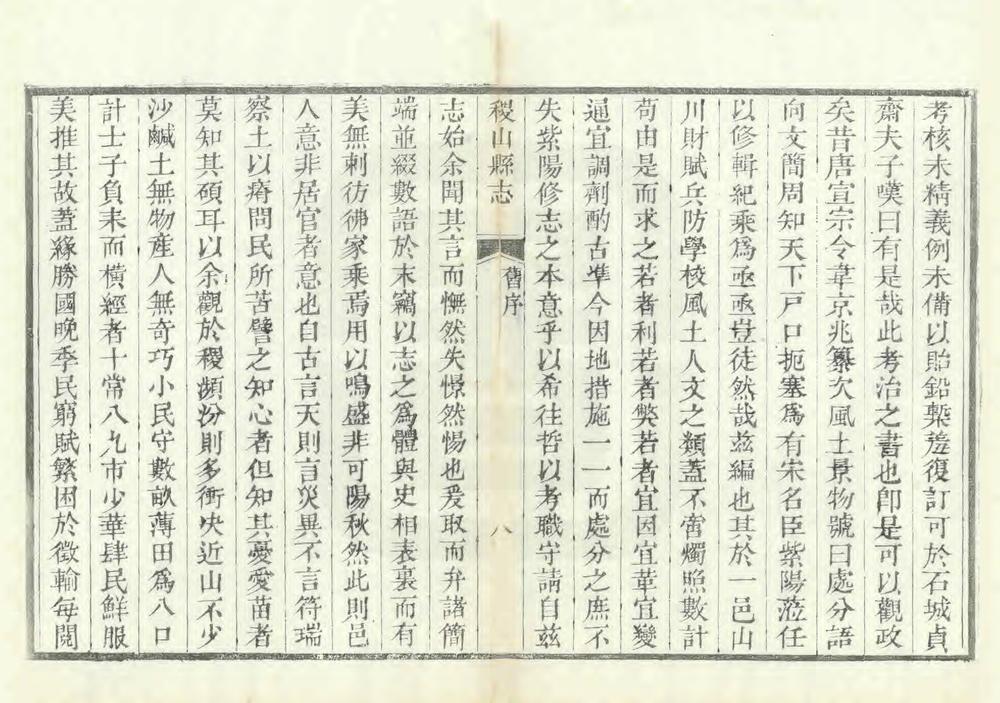 考核未精義例未備以貽鉛槧羞復訂可於石城貞
齋夫子嘆曰有是哉此考治之書也卽是可以觀政
矣昔唐宣宗令韋京兆纂次風土景物號曰處分語
向文簡周知天下戸口扼塞爲有宋名臣紫陽蒞任
以修輯紀乘爲亟亟豈徒然哉茲編也其於一邑山
川財賦兵防學校風土人文之類蓋不啻燭照數計
苟由是而求之若者利若者獘若者宜因宜革宜變
通宜調劑酌古準今因地措施一一而處分之庶不
失紫陽修志之本意乎以希往哲以考職守請自茲
稷山縣志
舊序
八
志始余聞其言而憮然失憬然惕也爰取而弁諸簡
端並綴數語於末竊以志之爲體與史相表裏而有
美無刺彷彿家乘焉用以鳴盛非可陽秋然此則邑
人意非居官者意也自古言天則言災異不言符瑞
察土以瘠問民所苦譬之知心者但知其憂愛苗者
莫知其碩耳以余觀於稷瀕汾則多衝决近山不少
沙鹹土無物産人無奇巧小民守數畝薄田爲八口
計士子負耒而橫經者十常八九市少華肆民鮮服
美推其故蓋緣勝國晚季民窮賦繁困於徵輸每閱